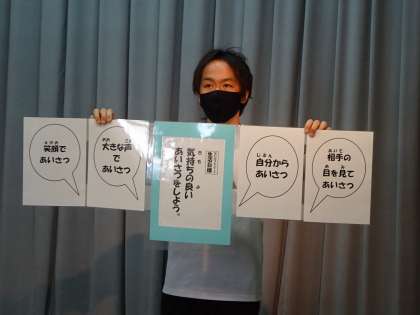 笑顔で
あいさつ
大きな声
で
あいさつ
生活目標
気持ちの良い
あいさつをしよう。
自分から
あいさつ
相手の
目を見て
あいさつ